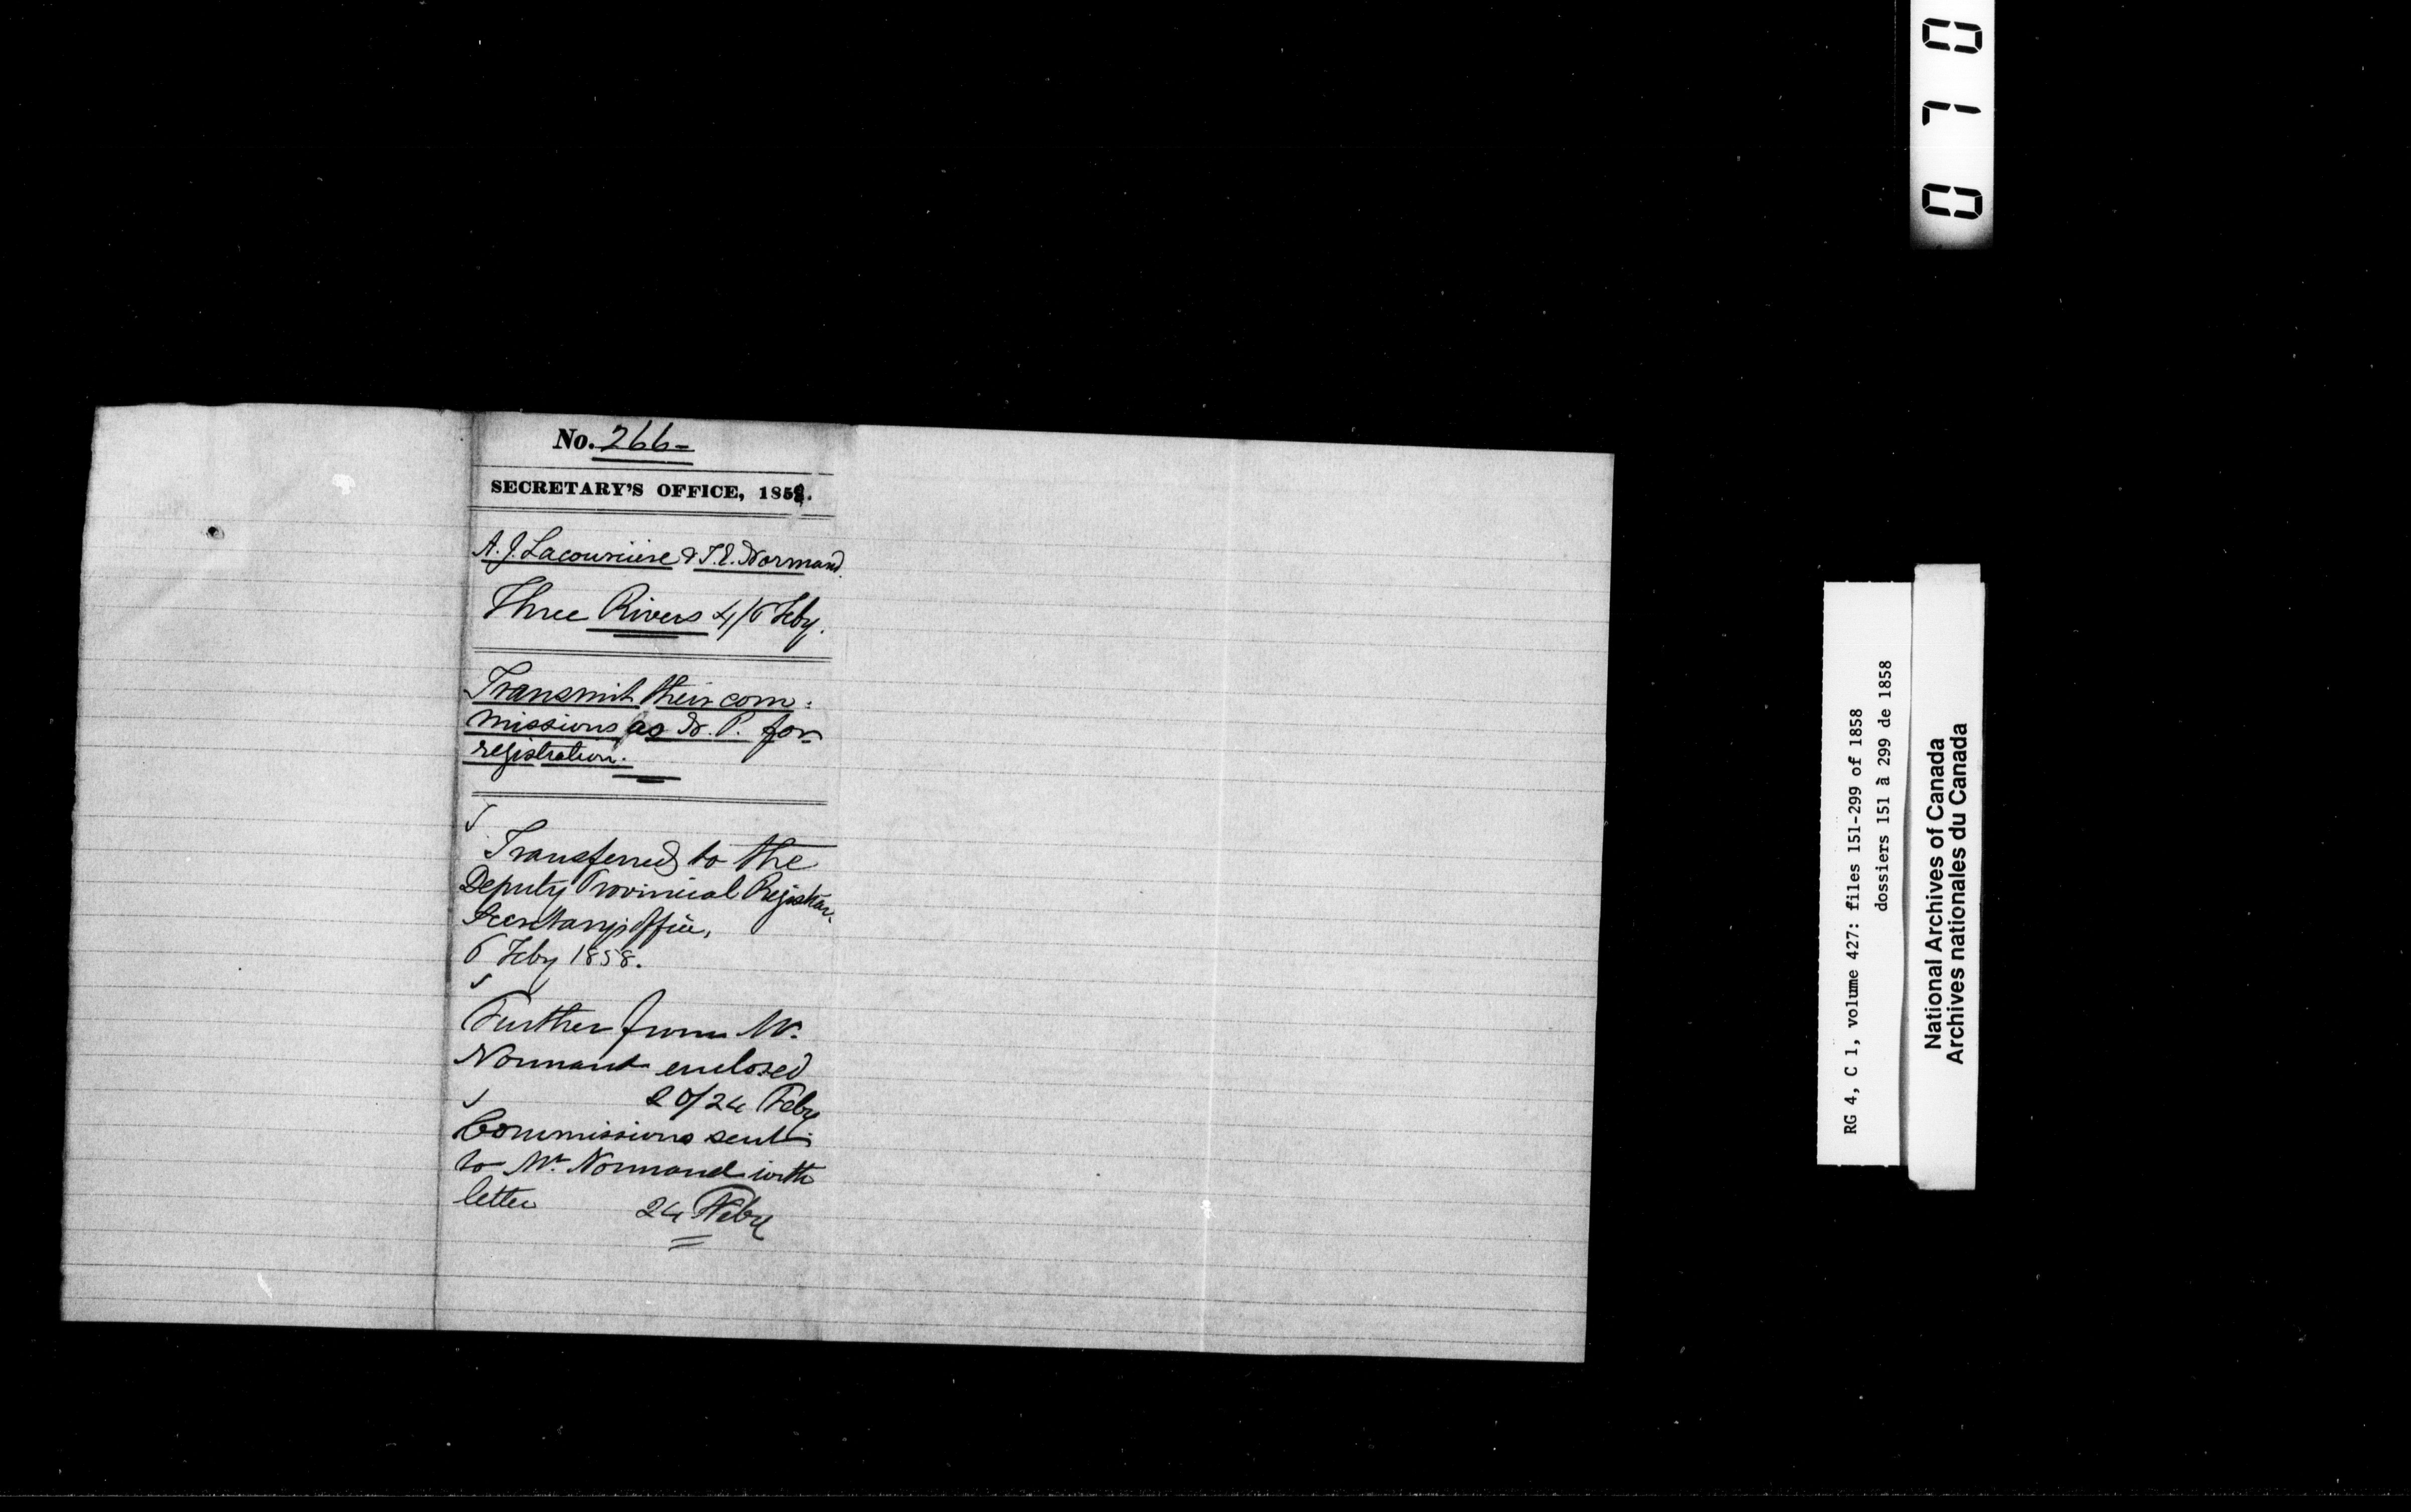 No. 266-
SECRETARY'S OFFICE, 1858.
A. J. Lacoursière & T. E. Normand.
Three Rivers 4/6 Feby.
Transmit their com:
missions as N. P. for
registration.
Transferred to the
Deputy Provincial Registrar.
Secretary's Office,
6 Feby 1858.
Further from Mr.
Normand enclosed
20/24 Feby
Commissions sent
to Mr. Normand with
letter 24 Feby
070
RG 4, C 1, volume 427: files 151-299 of 1858
dossiers 151 à 299 de 1858
National Archives of Canada
Archives nationales du Canada